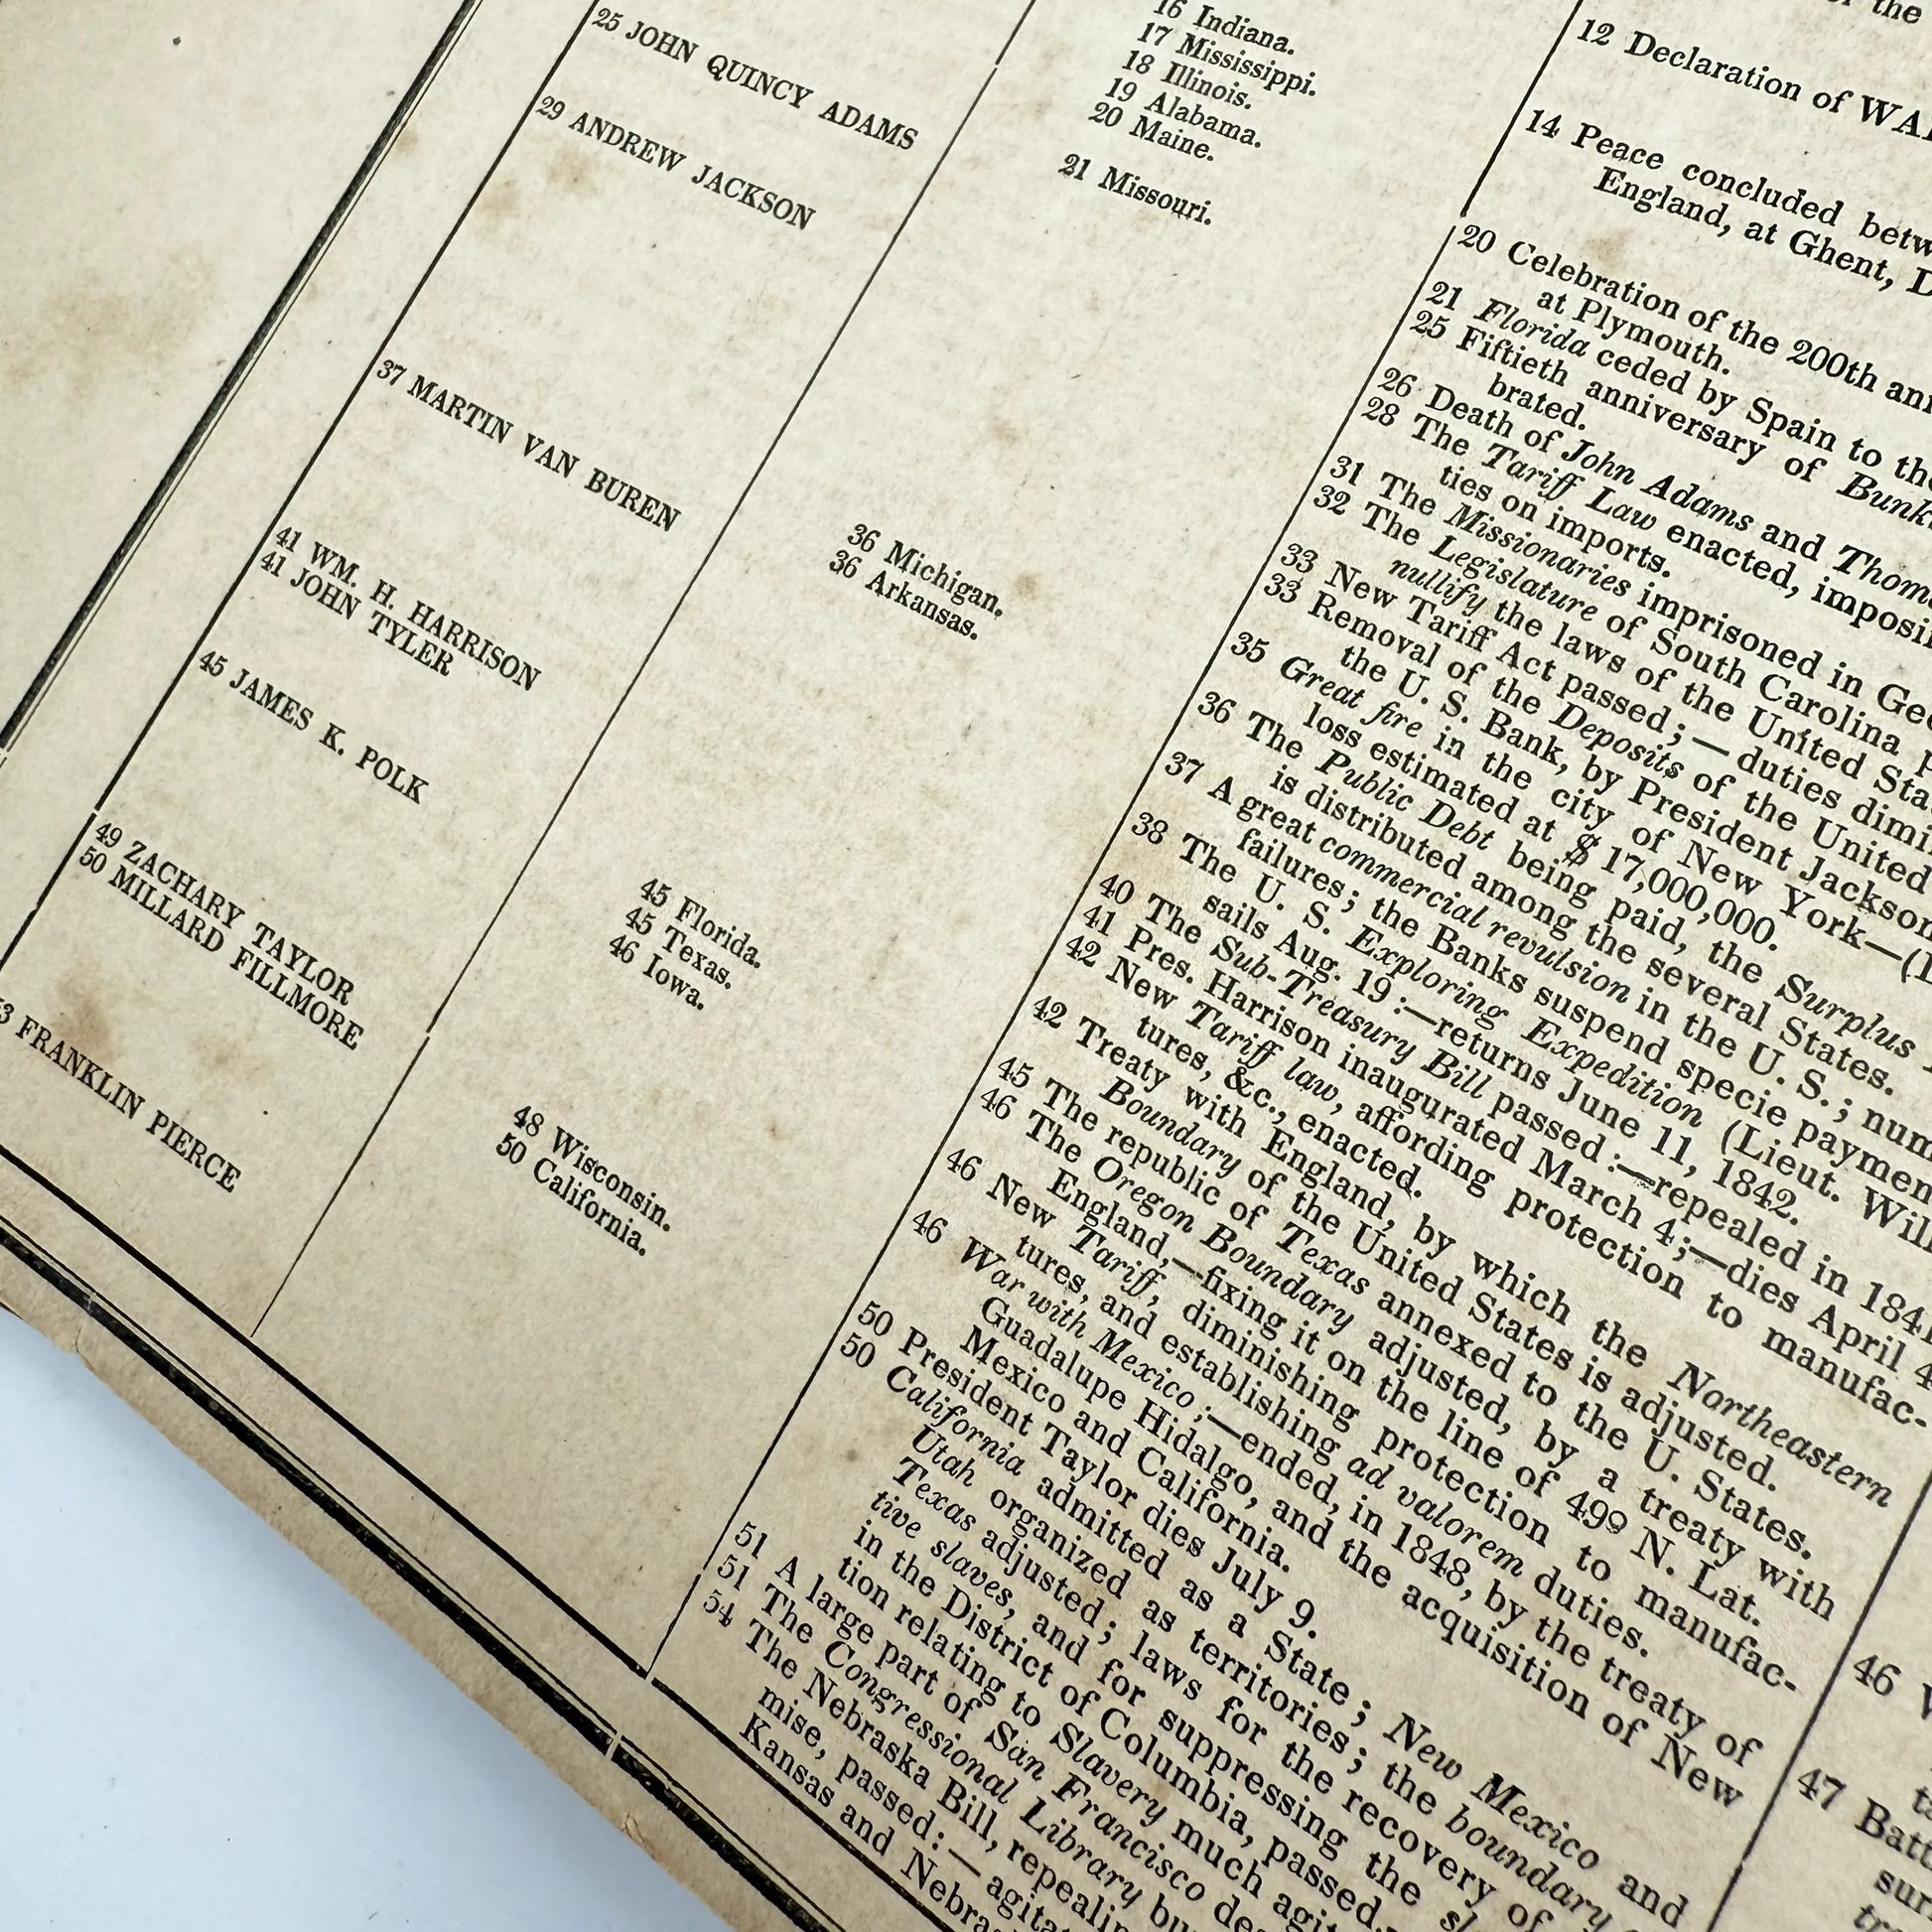 25 JOHN QUINCY ADAMS
29 ANDREW JACKSON
37 MARTIN VAN BUREN
41 WM. H. HARRISON
41 JOHN TYLER
45 JAMES K. POLK
49 ZACHARY TAYLOR
50 MILLARD FILLMORE
3 FRANKLIN PIERCE
16 Indiana.
17 Mississippi.
18 Illinois.
19 Alabama.
20 Maine.
21 Missouri.
36 Michigan.
36 Arkansas.
45 Florida.
45 Texas.
46 Iowa.
48 Wisconsin.
50 California.
the
12 Declaration of
14 Peace concluded
England, at Ghent,
20 Celebration of the 200th
at Plymouth.
21 Florida ceded by Spain to
25 Fiftieth anniversary of
brated.
26 Death of John Adams and
28 The Tariff Law enacted,
ties on imports.
31 The Missionaries imprisoned in
32 The Legislature of South Carolina
nullify the laws of the United
33 New Tariff Act passed;—duties
33 Removal of the Deposits of the United
the U. S. Bank, by President Jackson
35 Great fire in the city of New York—
loss estimated at $17,000,000.
36 The Public Debt being paid, the Surplus
is distributed among the several States.
37 A great commercial revulsion in the U. S.;
failures; the Banks suspend specie
38 The U. S. Exploring Expedition (Lieut.
sails Aug. 19:—returns June 11, 1842.
40 The Sub-Treasury Bill passed:—repealed in
41 Pres. Harrison inaugurated March 4;—dies April
42 New Tariff law, affording protection to manufac-
tures, &c., enacted.
42 Treaty with England, by which the Northeastern
Boundary of the United States is adjusted.
45 The republic of Texas annexed to the U. States.
46 The Oregon Boundary adjusted, by a treaty with
England,—fixing it on the line of 49º N. Lat.
46 New Tariff, diminishing protection to manufac-
tures, and establishing ad valorem duties.
46 War with Mexico;—ended, in 1848, by the treaty of
Guadalupe Hidalgo, and the acquisition of New
Mexico and California.
50 President Taylor dies July 9.
50 California admitted as a State; New Mexico and
Utah organized as territories; the boundary
Texas adjusted; laws for the recovery of
tive slaves, and for suppressing the
in the District of Columbia, passed.
tion relating to Slavery much
51 A large part of San Francisco
51 The Congressional Library
54 The Nebraska Bill,
mise, passed:—
Kansas and
46
47